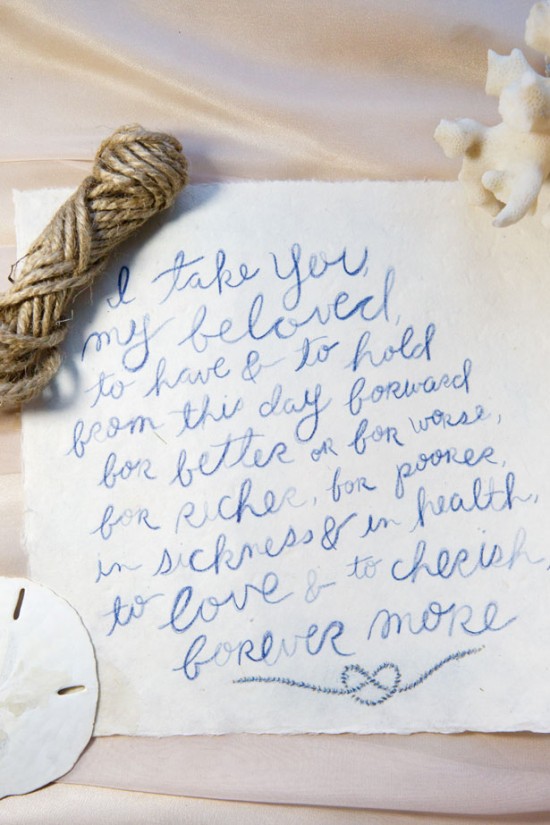 I take you,
my beloved,
to have & to hold
from this day forward
for better or for worse,
for richer, for poorer,
in sickness & in health,
to love & to cherish,
forever more